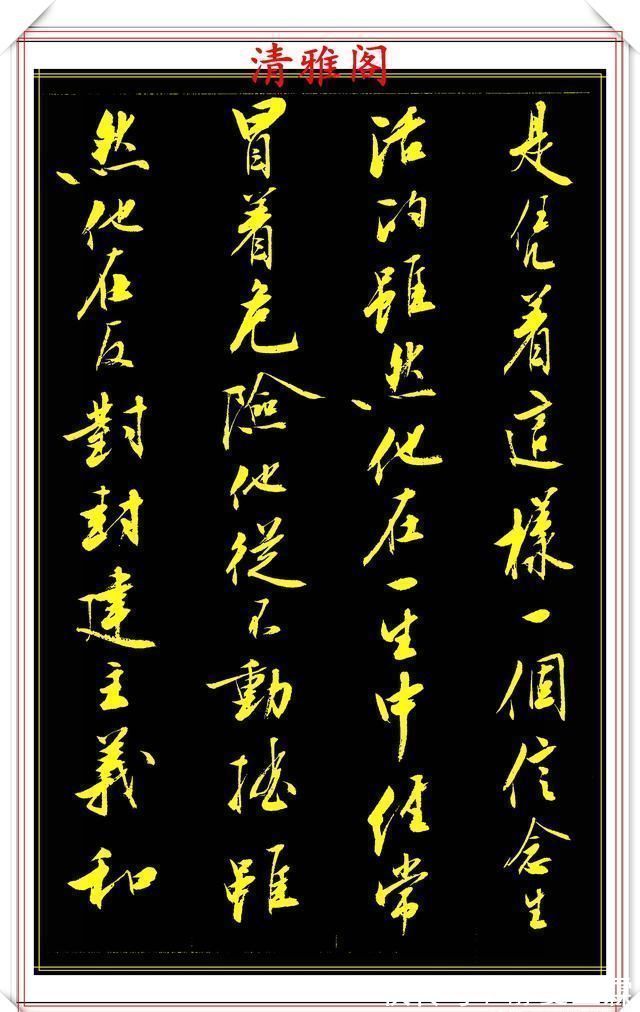 清雅阁
是凭着這樣一個信念生
活的雖然他在一生中經常
冒着危險他從不動摇雖
然他在反對封建主義和